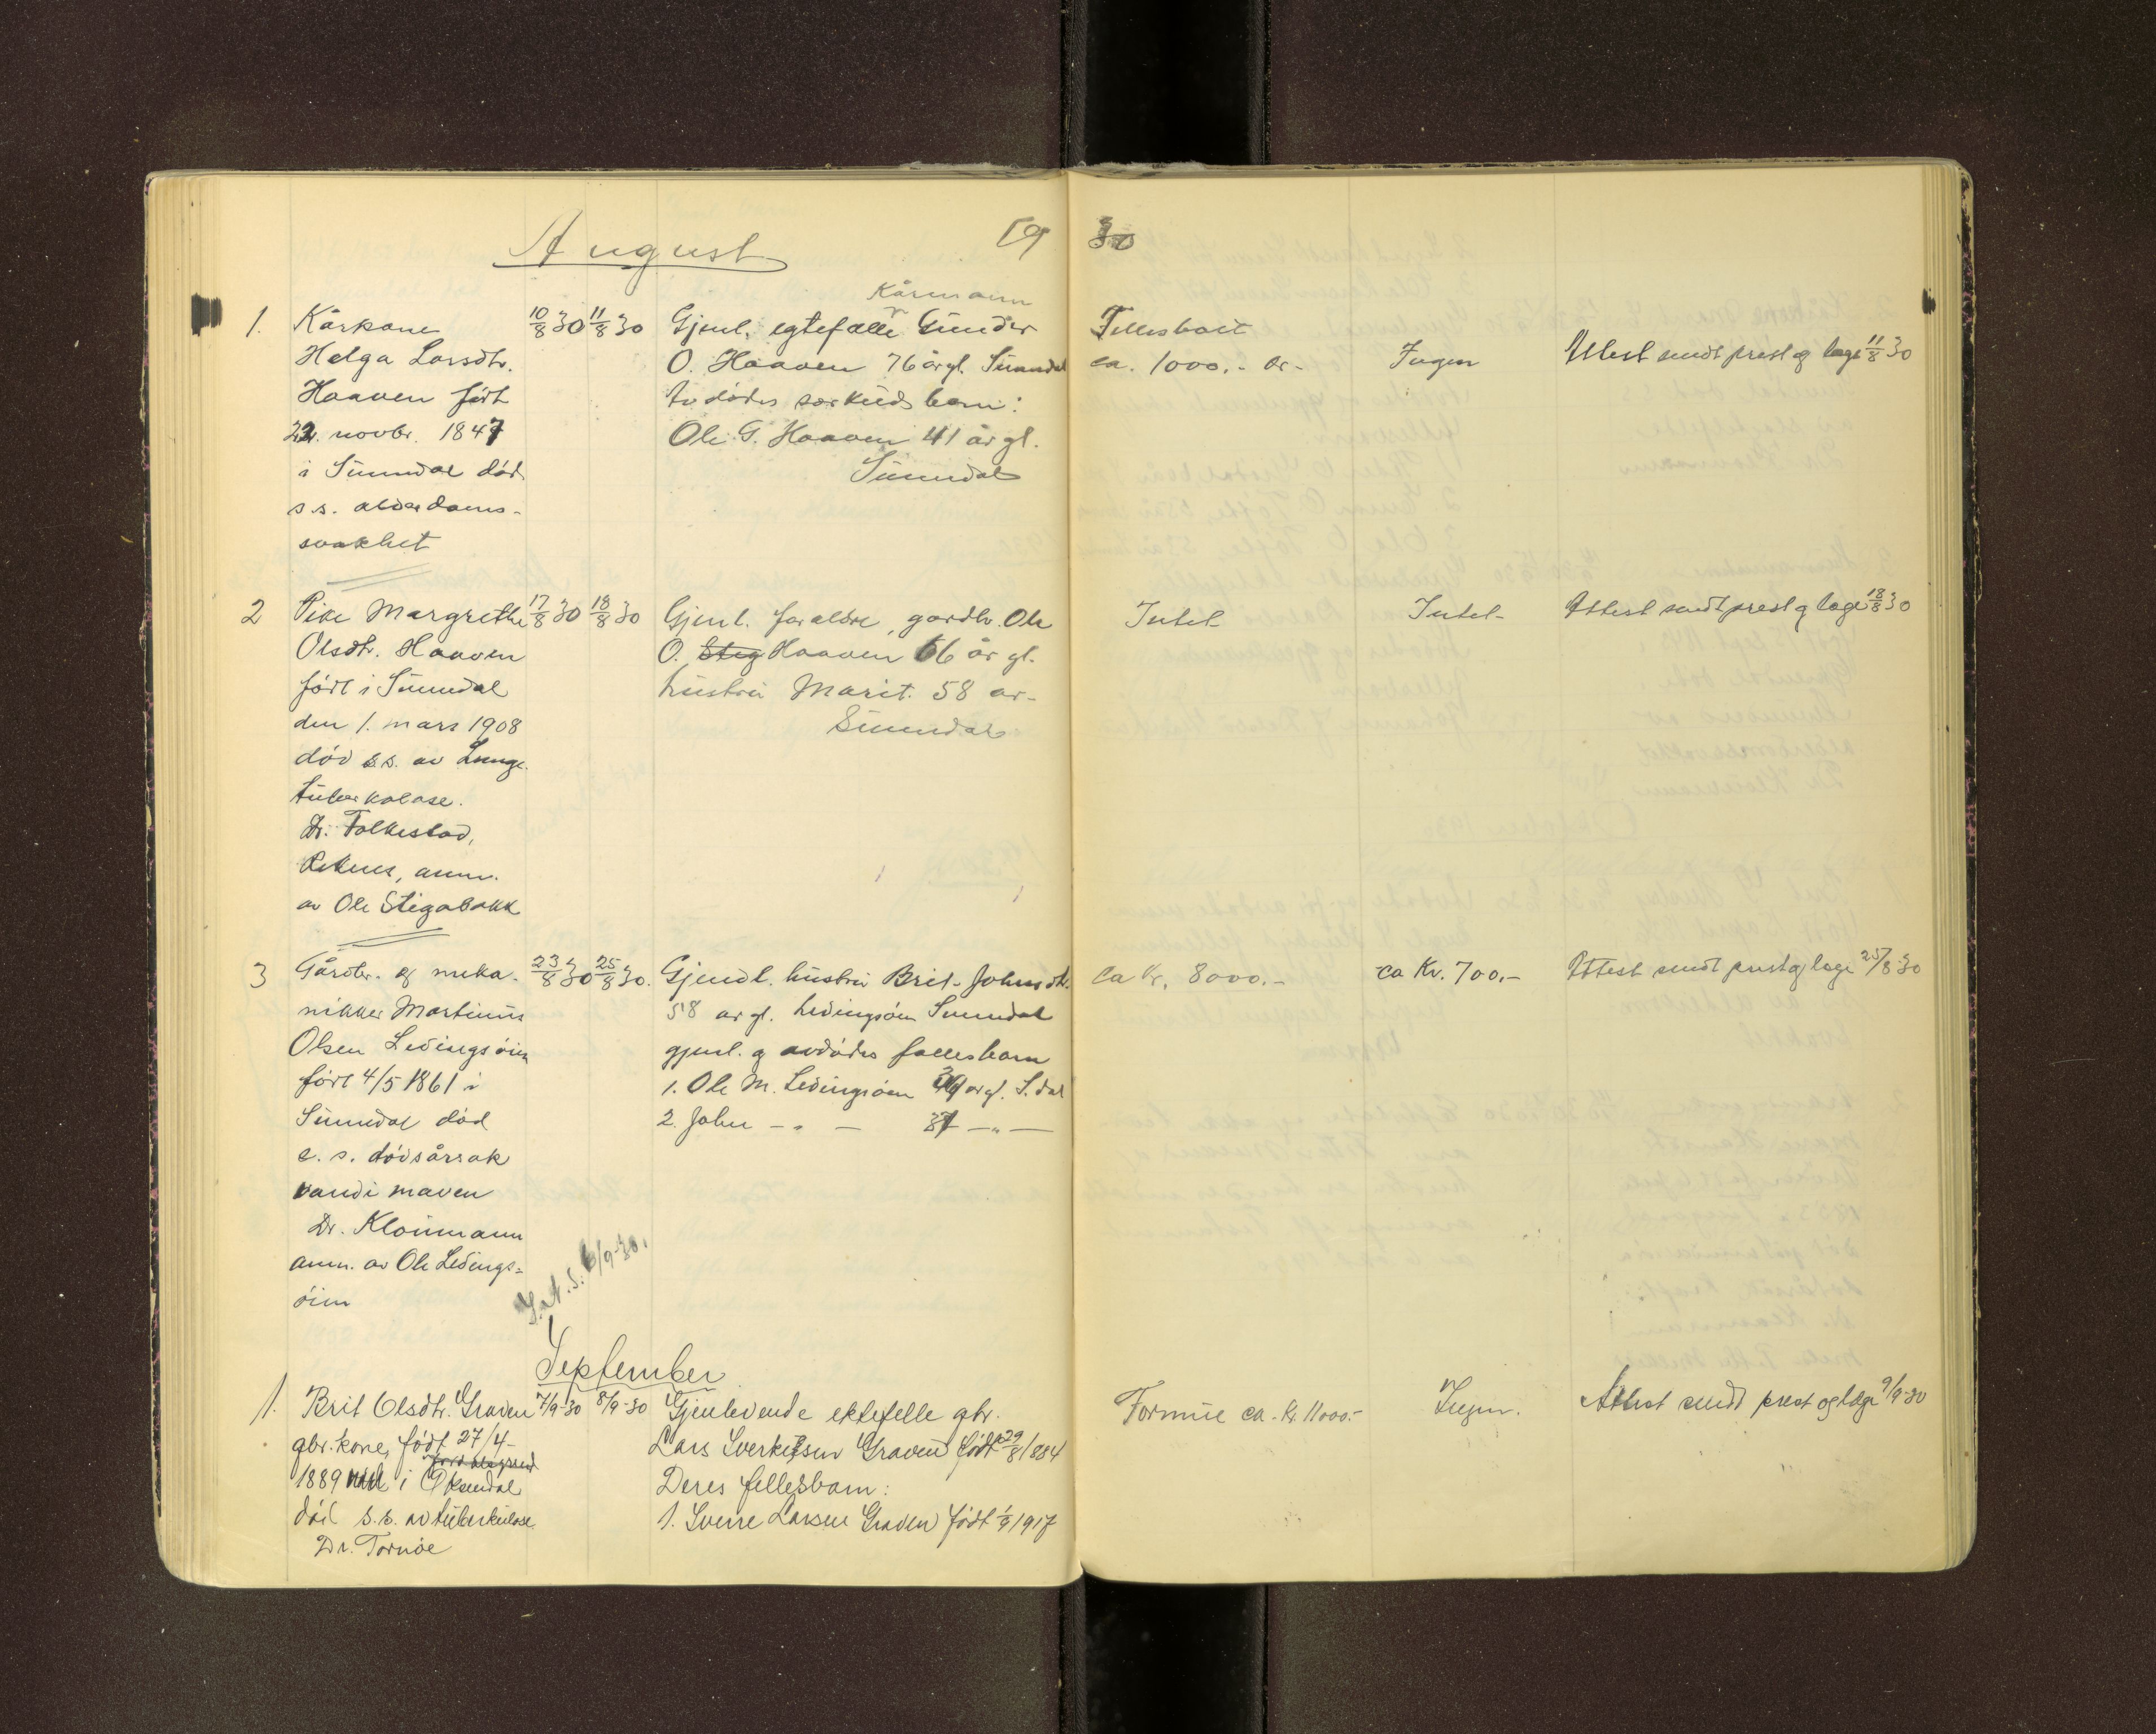 August 19 30
1. Kårkone 10/8 30 11/8 30 Gjenl. egtefælle Kårmann Gunder Fellesboet
Helga Larsdtr. O. Haaven 76 år gl. Sunndal ca. 1000.- kr- Ingen Attest sendt prest og læge 11/8 30
Haaven født Av dødes særkuldsbarn:
22. novbr. 1847 Ole G. Haaven 41 år gl.
i Sunndal død Sunndal
s.s. alderdoms-
svakhet
2 Pike Margrethe 17/8 30 18/8 30 Gjenl. forældre, gårdbr. Ole Intet Intet- Attest sendt prest og læge 18/8 30
Olsdtr. Haaven O. Steg Haaven 66 år gl.
født i Sunndal hustru Marit. 58 år-
den 1. mars 1908 Sunndal
død s.s. av Lunge-
tuberkolose.
Dr. Folkestad,
anm.
av Ole Stigabakk
3 Gårdbr. og meka- 23/8 30 25/8 30. Gjenl. hustru Brit Johnsdtr. ca kr. 8000.- ca Kr. 700.- Attest sendt prest og læge 25/8-30
nikker Martinus 58 år gl. Ledingsøin Sunndal
Olsen Ledingsøien gjenl. og avdødes fællesbarn
født 4/5 1861 i 1. Ole M. Ledingsøen år gl. S.dal
Sunndal død 2. John - " - 37 - " -
s. s. dødsårsak
vand i maven
Dr. Kloumann
anm. av Ole Ledings=
øien
6/9-30.
September
1. Brit Olsdtr. Graven 7/9-30 8/9-30 Gjenlevende ektefelle gbr. Formue ca. kr. 11000.- Ingen. Attest sendt prest og læge 9/9-30
gbr. kone, født 27/4- Lars Sverkesen Graven født 29/8 1884
1889 i Øksendal Deres fellesbarn:
død s.s. av tuberkulose 1. Sverre Larsen Graven født 1/9 1917
Dr. Tornøe